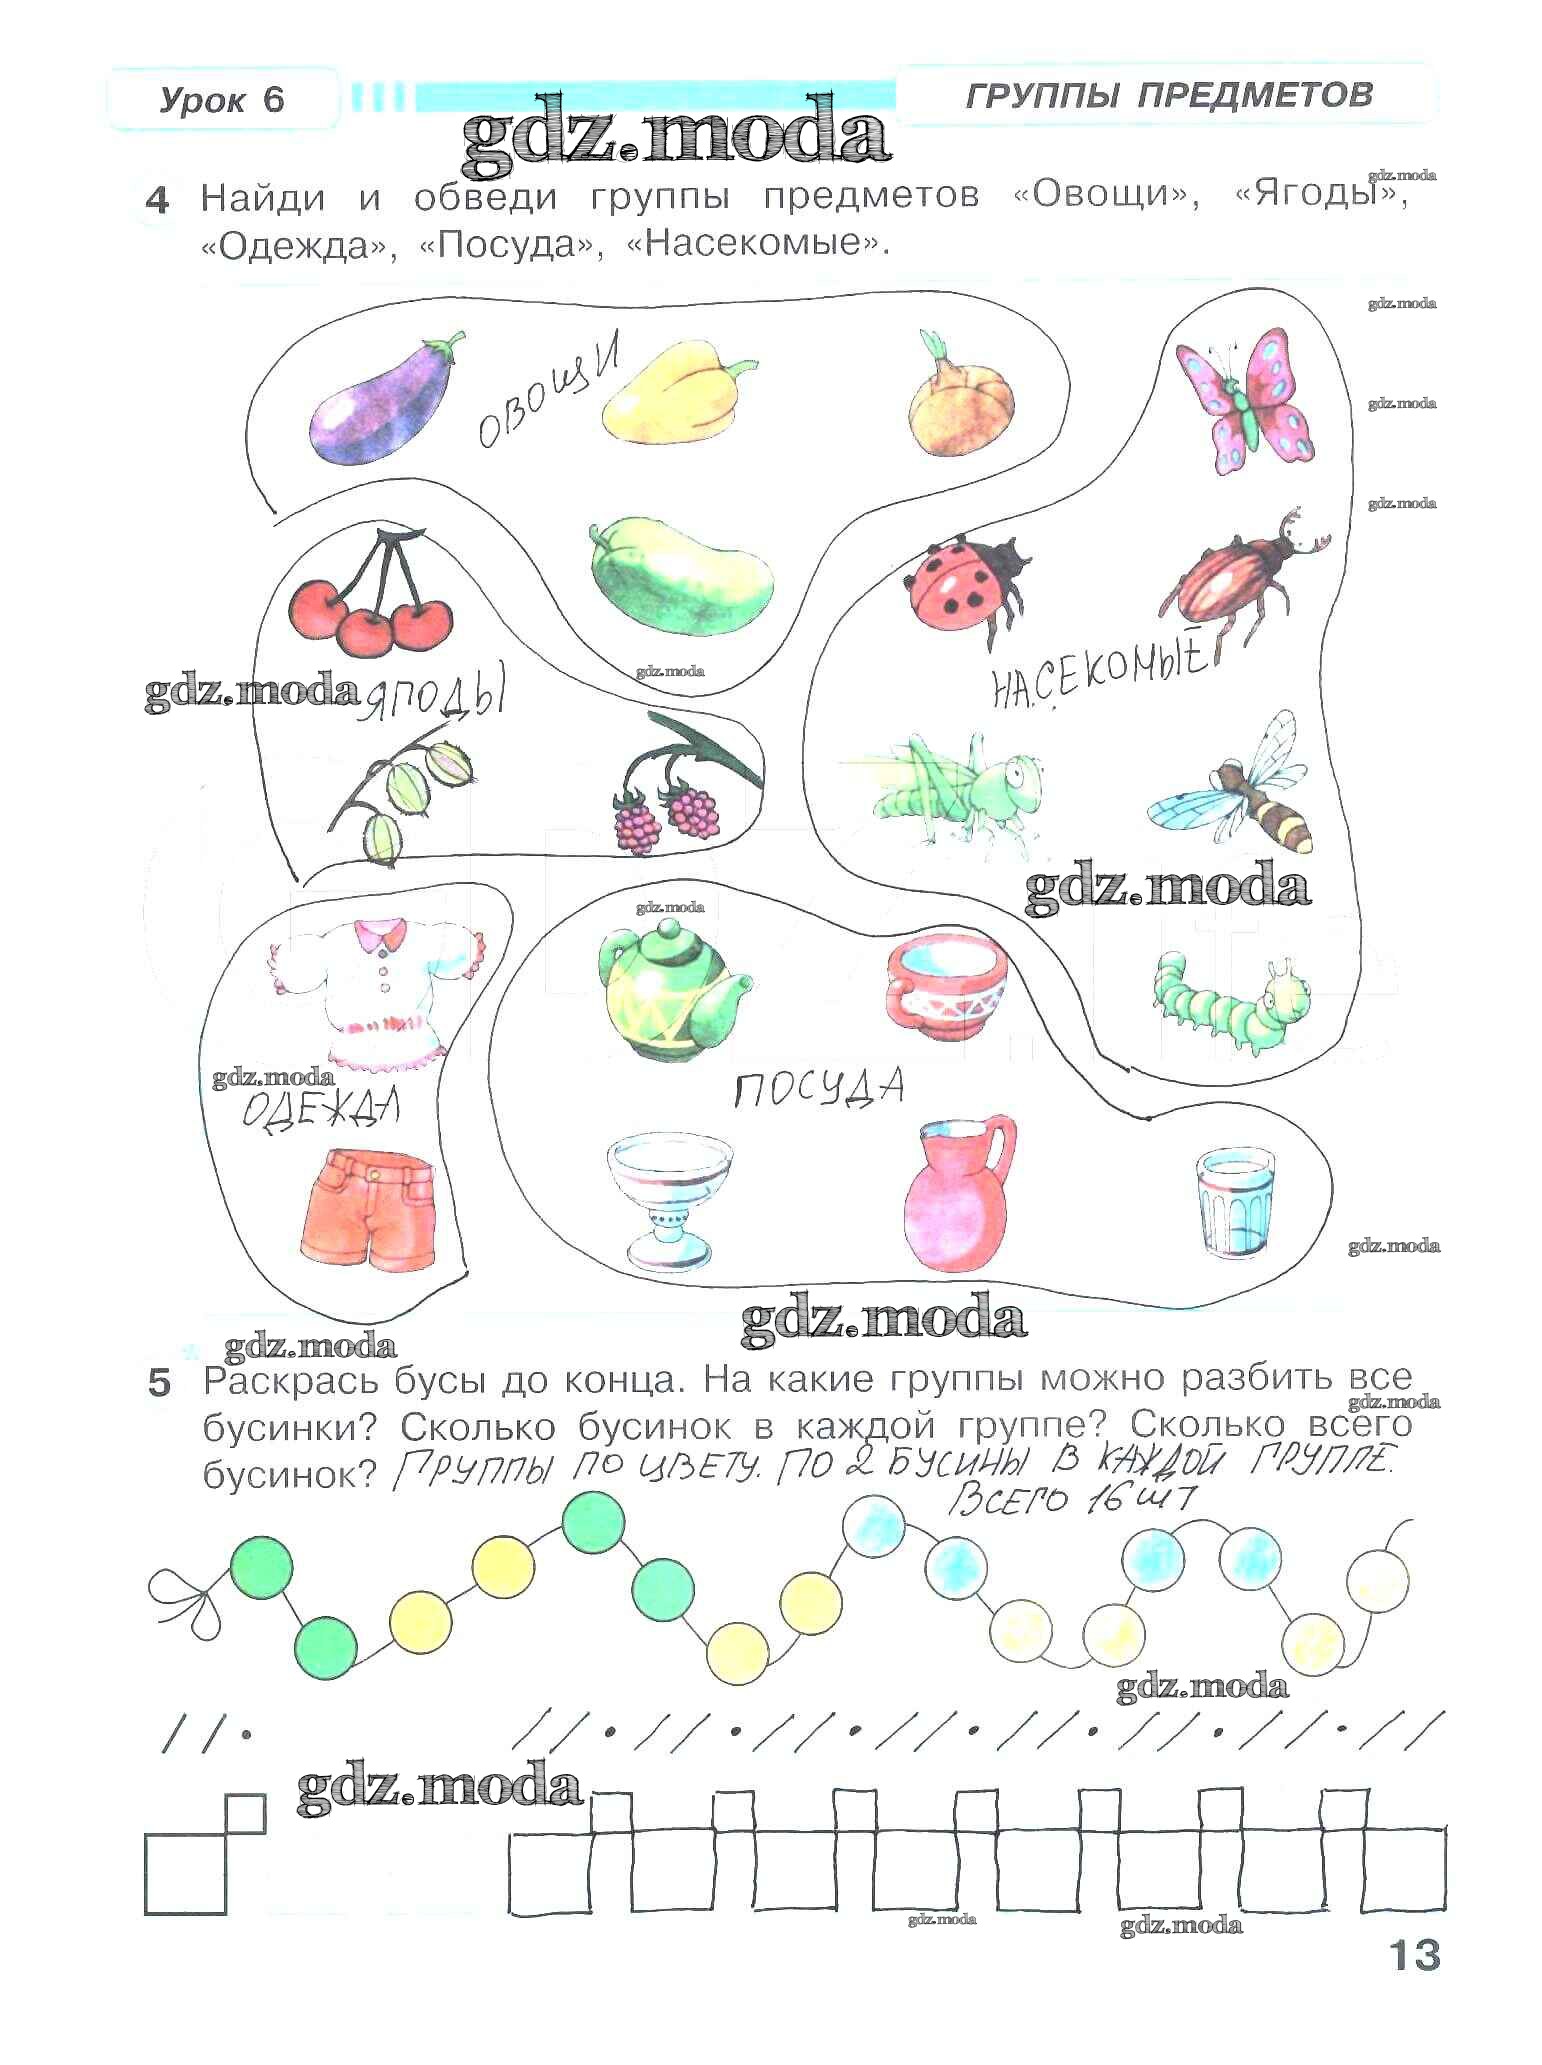 Урок 6
ГРУППЫ ПРЕДМЕТОВ
gdz.moda
gdz.moda
4 Найди и обведи группы предметов «Овощи», «Ягоды»,
«Одежда», «Посуда», «Насекомые».
gdz.moda
ОВОЩИ
gdz.moda
gdz.moda
gdz.moda
НАСЕКОМЫЕ
gdz.moda
ЯГОДЫ
gdz.moda
gdz.moda
gdz.moda
ОДЕЖДА
ПОСУДА
gdz.moda
gdz.moda
gdz.moda
5 Раскрась бусы до конца. На какие группы можно разбить все
gdz.moda
бусинки? Сколько бусинок в каждой группе? Сколько всего
бусинок? ГРУППЫ ПО ЦВЕТУ. ПО 2 БУСИНЫ В КАЖДОЙ ГРУППЕ.
ВСЕГО 16 ШТ
gdz.moda
gdz.moda
gdz.moda
gdz.moda
13